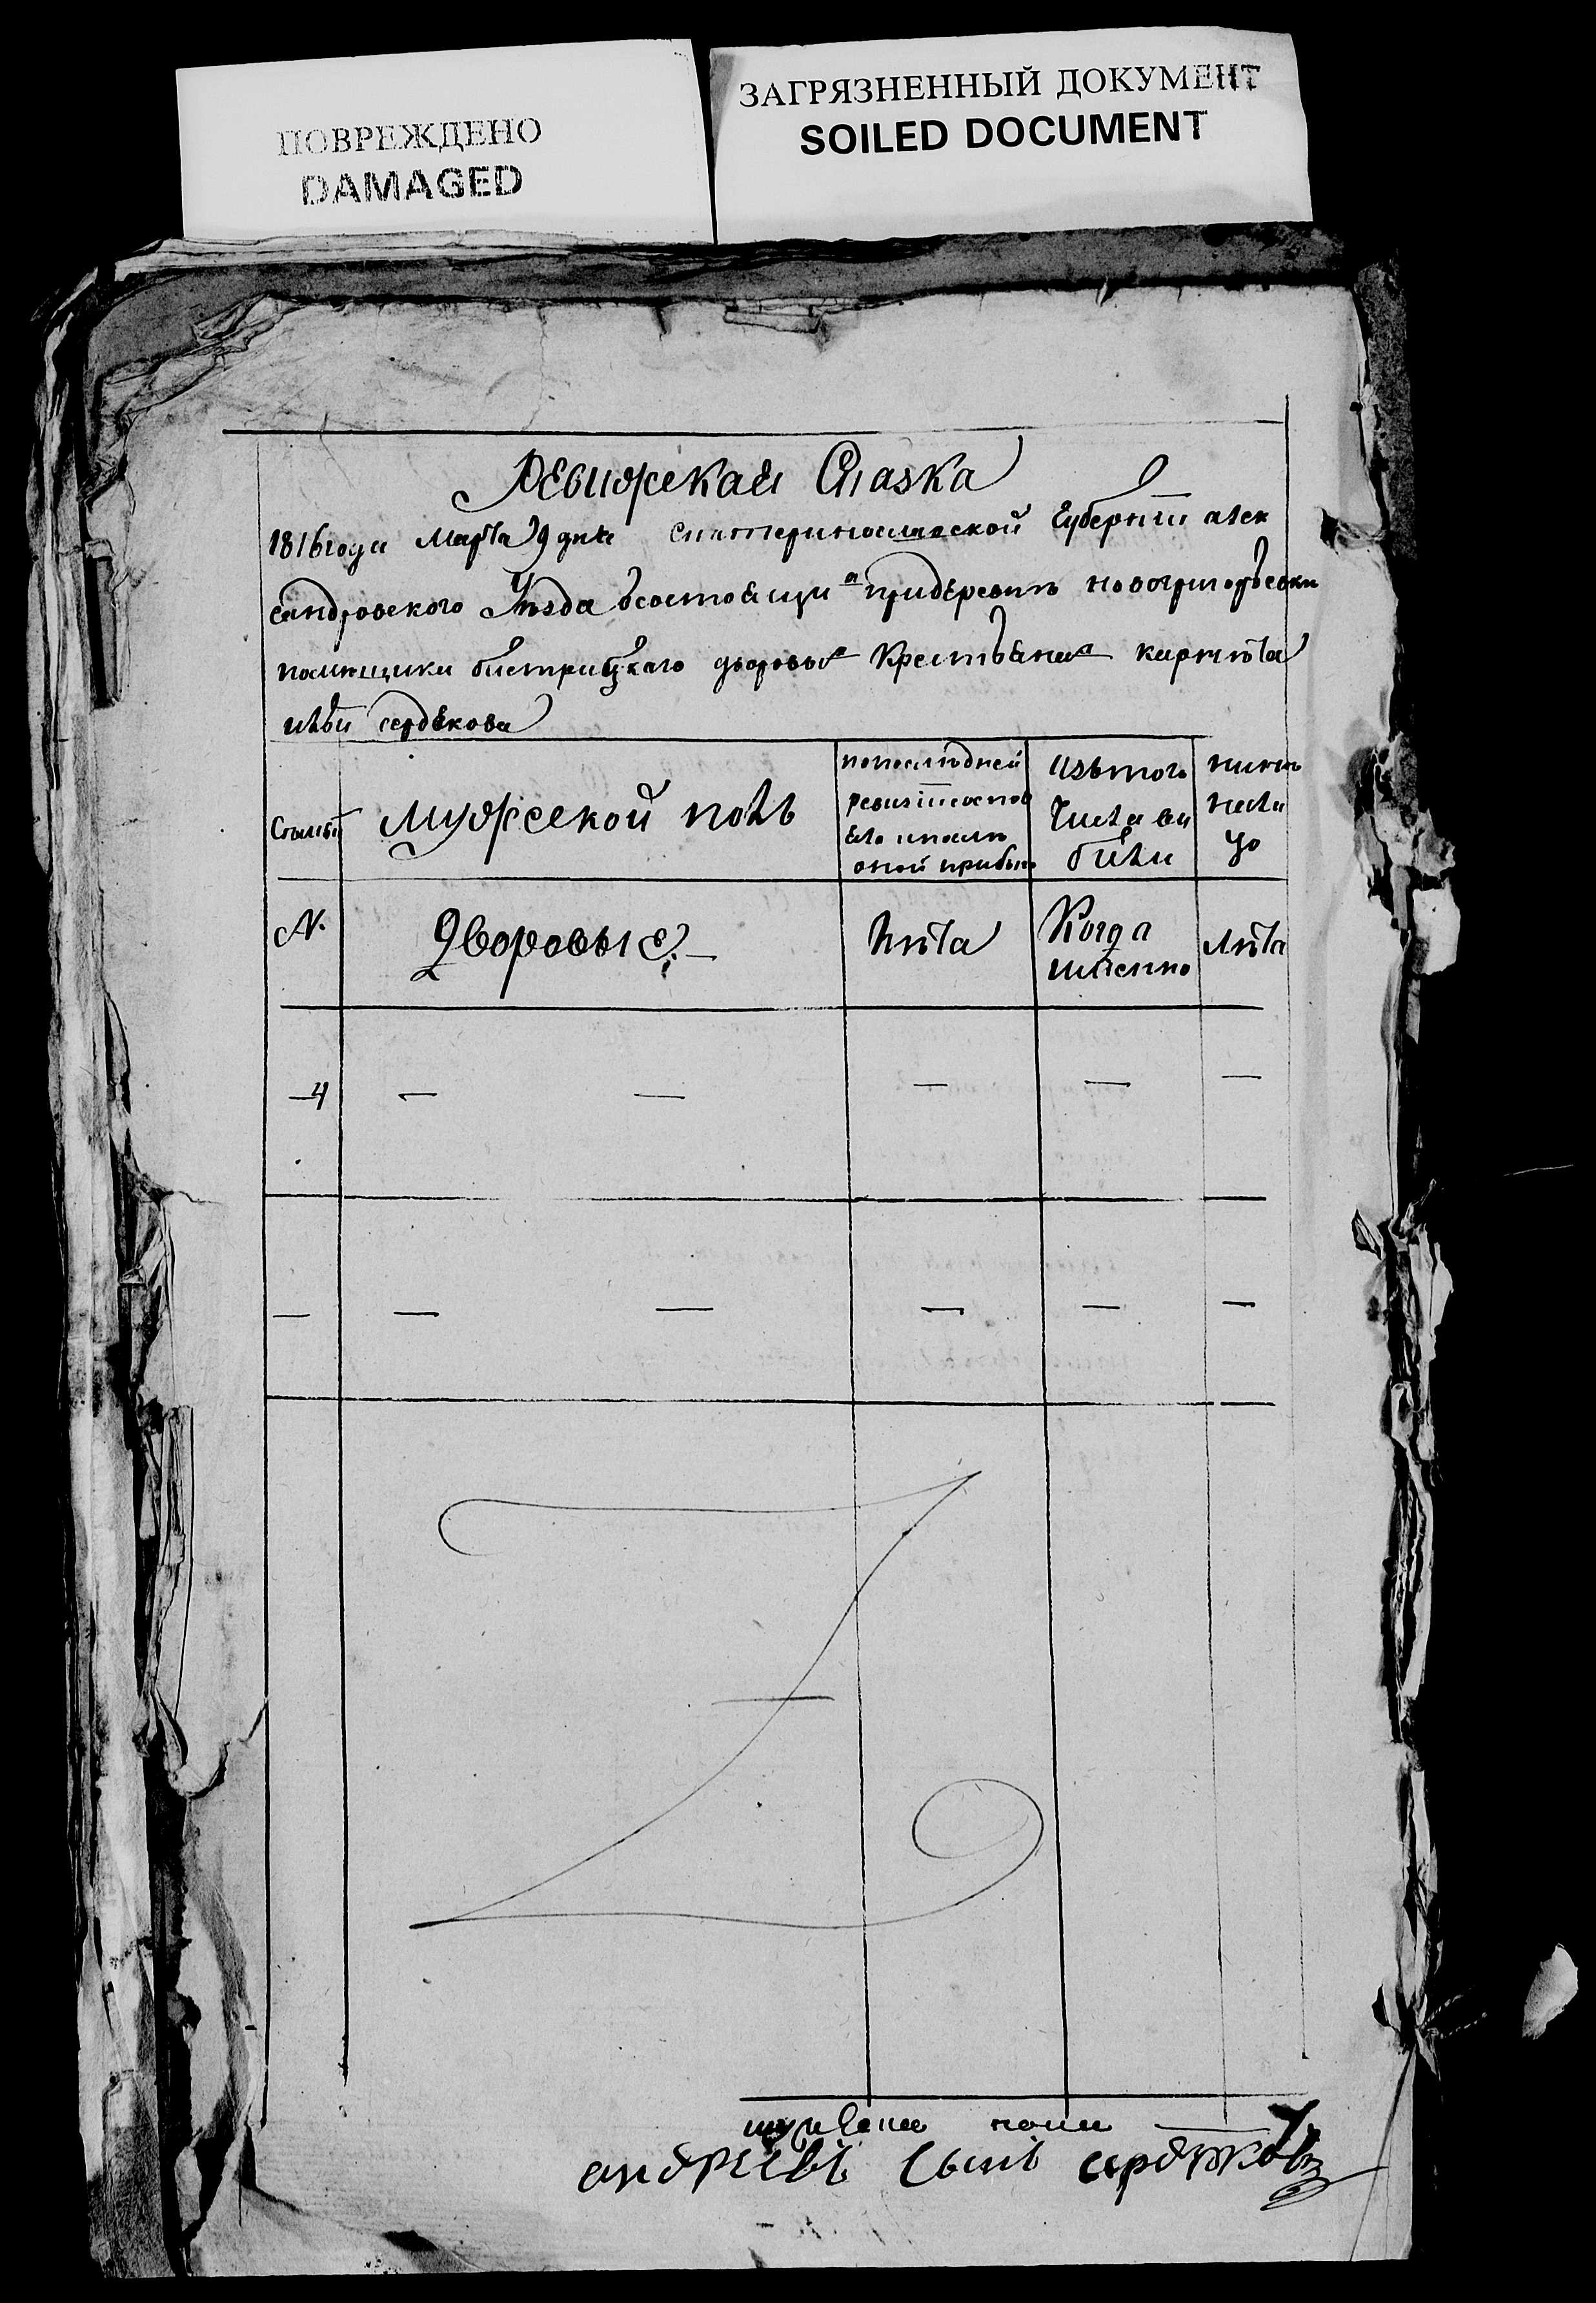 ПОВРЕЖДЕНО
DAMAGED
ЗАГРЯЗНЕННЫЙ ДОКУМЕНТ
SOILED DOCUMENT
Ревижская Сказка
1816 года Марта 9 дня Екатеринославской Губернии алек
сандровского Уезда всостоящи придеревнѣ новогригорьевки
помещика бистрицкаго дворовых Крестьянах
сердѣкова
Семьи
мужеской полъ
попоследней
оной прибыло
изътого
числа вы
были
нинѣ
нали
цо
№.
Дворовые
лѣта
Когда
именно
лѣта
4
андреевъ сынъ сердюковъ